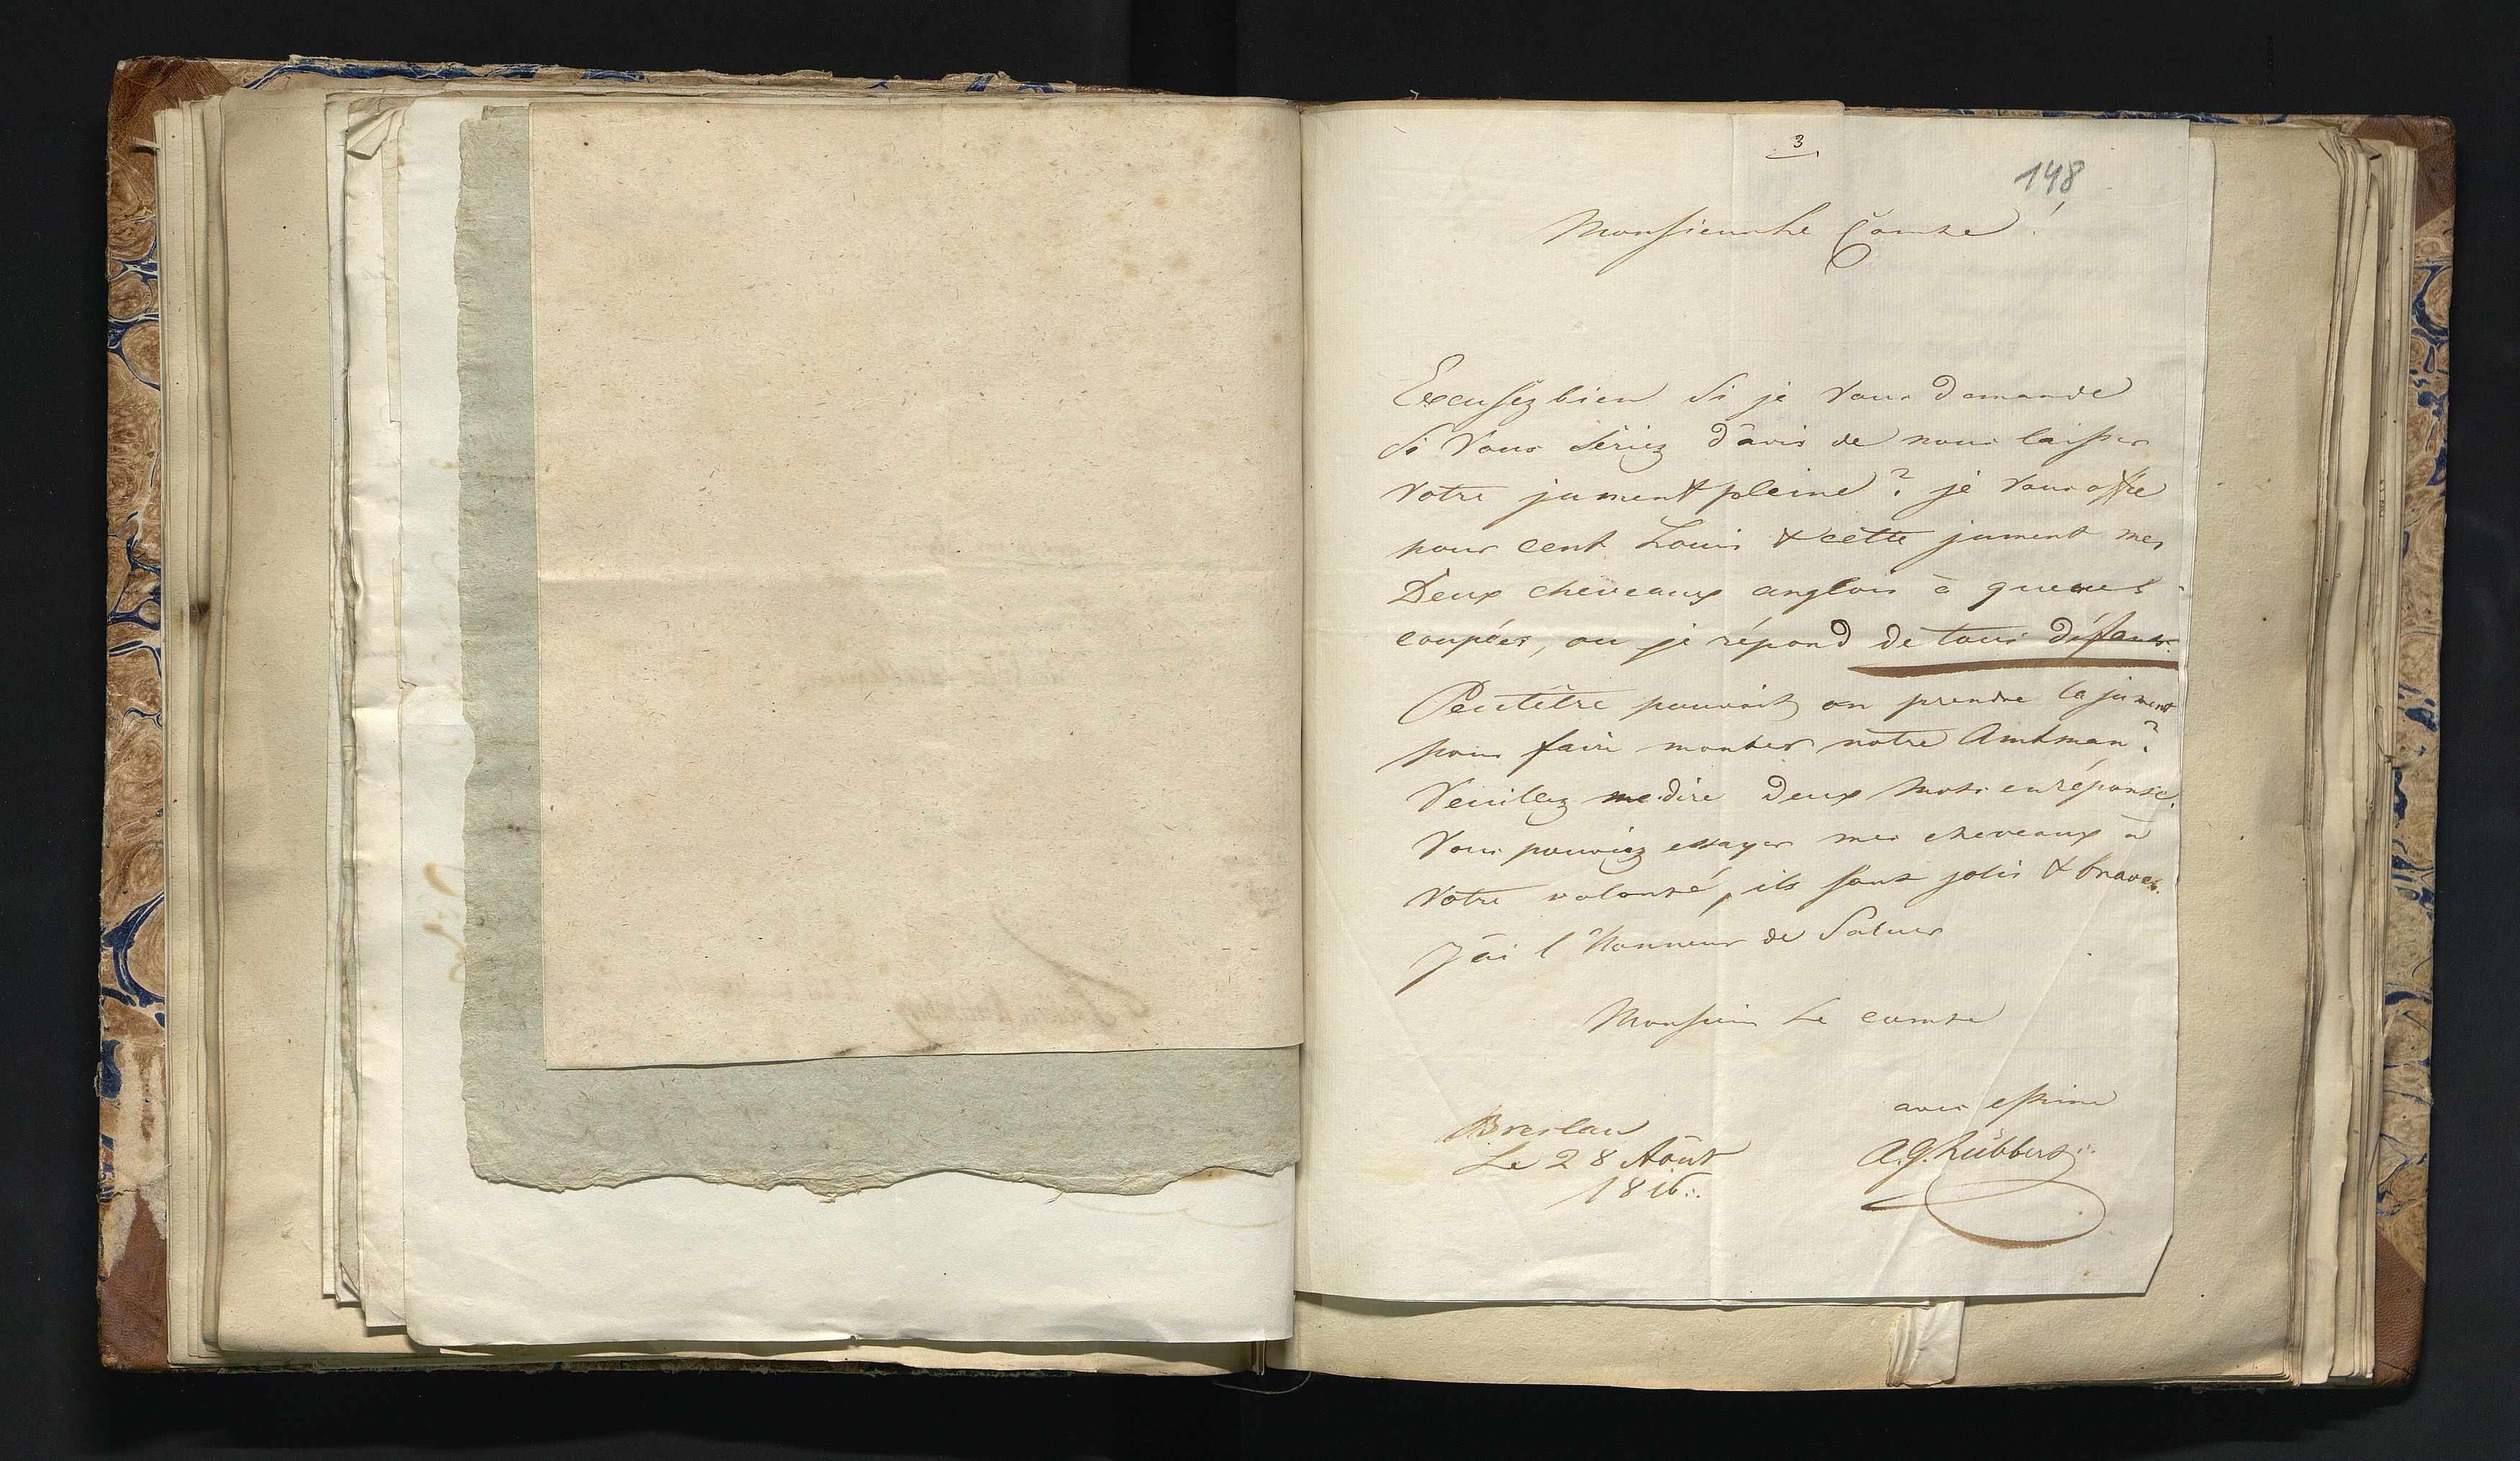 3
148
Monsieur le Comte!
Excusez bien si je vous demande
si vous sériez d'avis de nous laisser
votre jument pleine? je vous offre
pour cent Louis & cette jument mes
Deux cheveaux anglois à queues
coupées, ou je répond de tous défauts.
Peutêtre pouvoit on prendre la jument
pour faire monter notre Amtman?
Veuillez me dire deux mots en réponse.
Vous pouviez essayer mes cheveaux à
votre volonté, ils sont jolis & braves.
J'ai l'honneur de Saluer
Monsieur Le comte
avec estime
Breslau
Le 28 Août
1816.
A.G. Lübbert